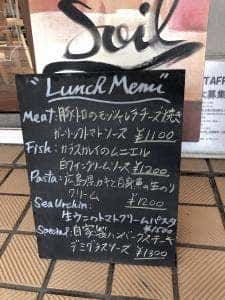 Soil
STAFF
"Lunch Menu"
Meat: 豚トロのモッツァレラチーズ焼き
ガーリックトマトソース ¥1100
Fish: カラスカレイのムニエル
白ワインクリームソース ¥1200
Pasta: 広島県カキと自家製の生のり
クリーム ¥1200
Sea Urchin:
生ウニのトマトクリームパスタ
¥1500
Special: 自家製ハンバーグステーキ
デミグラスソース ¥1300